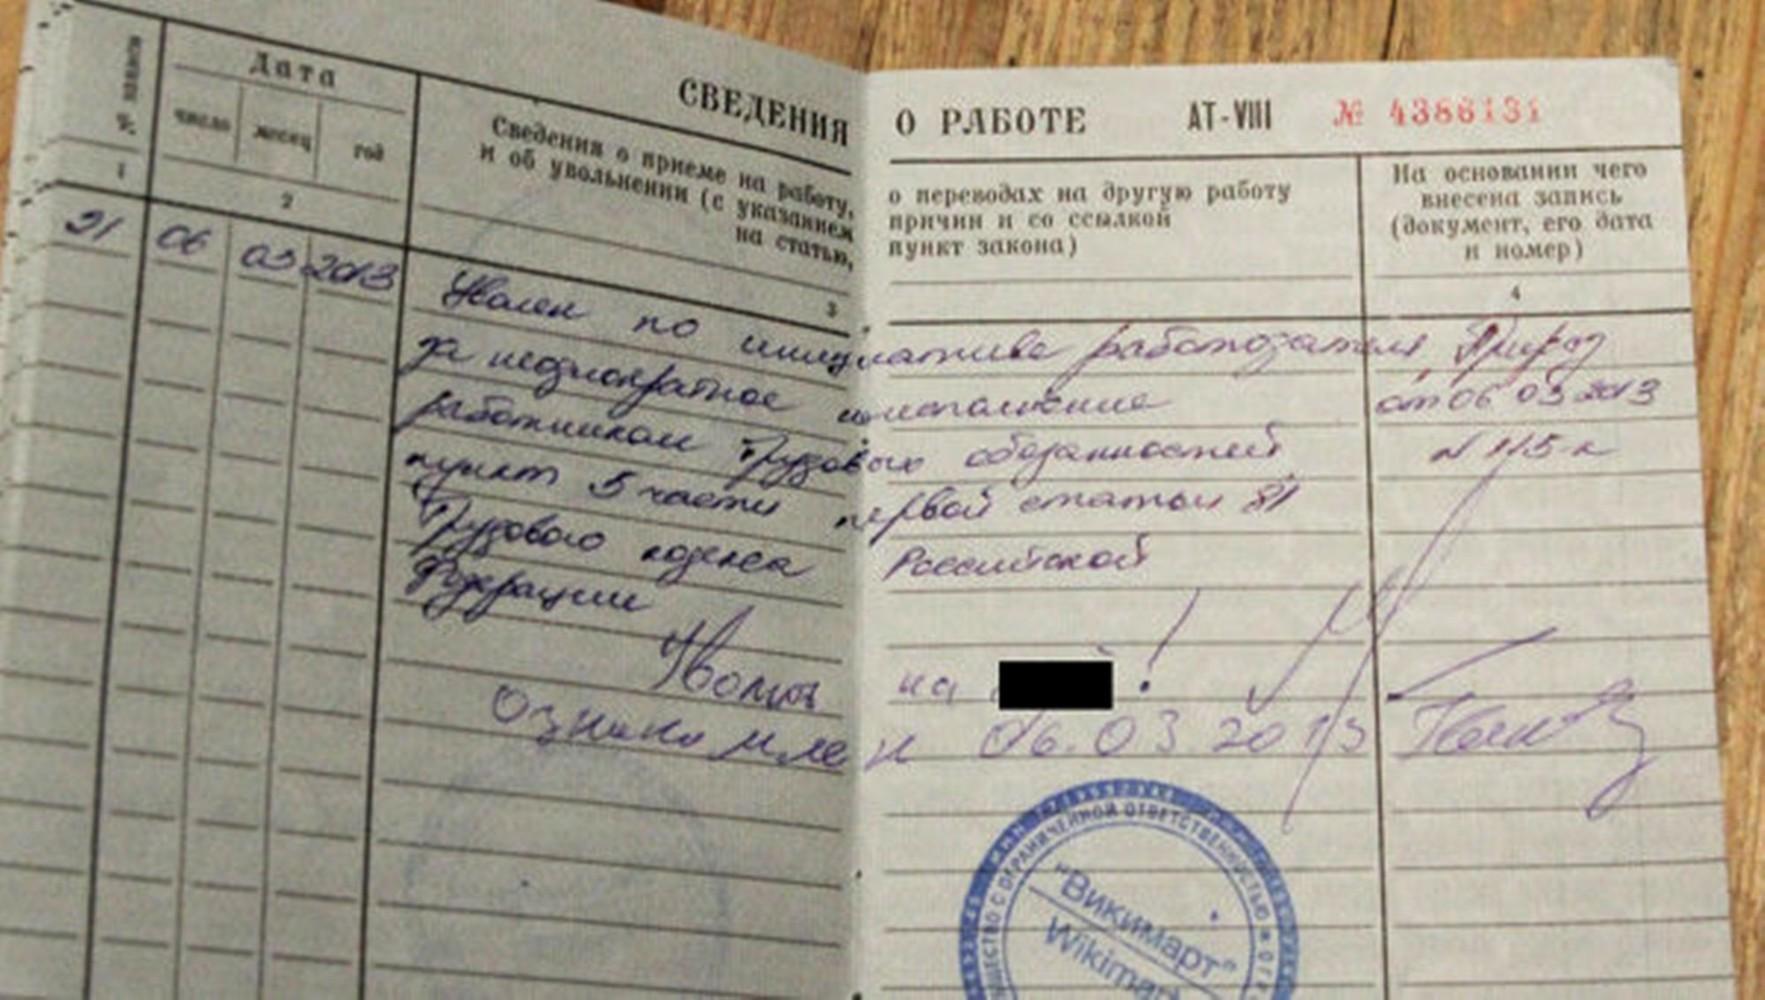 СВЕДЕНИЯ О РАБОТЕ АТ-VIII № 4386131
№ записи
Дата
число месяц год
Сведения о приеме на работу, о переводах на другую работу
и об увольнении (с указанием причин и со ссылкой
на статью, пункт закона)
На основании чего
внесена запись
(документ, его дата
и номер)
1 2 3 4
21 06 03 2013 Уволен по инициативе работодателя Приказ
за неоднократное неисполнение от 06 03 2013
работником трудовых обязанностей N 115-к
пункт 5 части первой статьи 81
Трудового кодекса Российской
Федерации
на !
Ознакомлен 06.03.2013
ОБЩЕСТВО С ОГРАНИЧЕННОЙ ОТВЕТСТВЕННОСТЬЮ
"Викимарт"
Wikimart